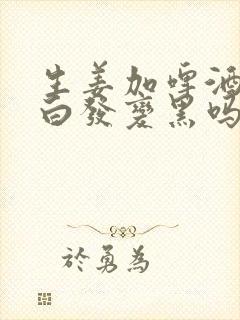 生姜加啤酒
白發變黑吗
於勇為